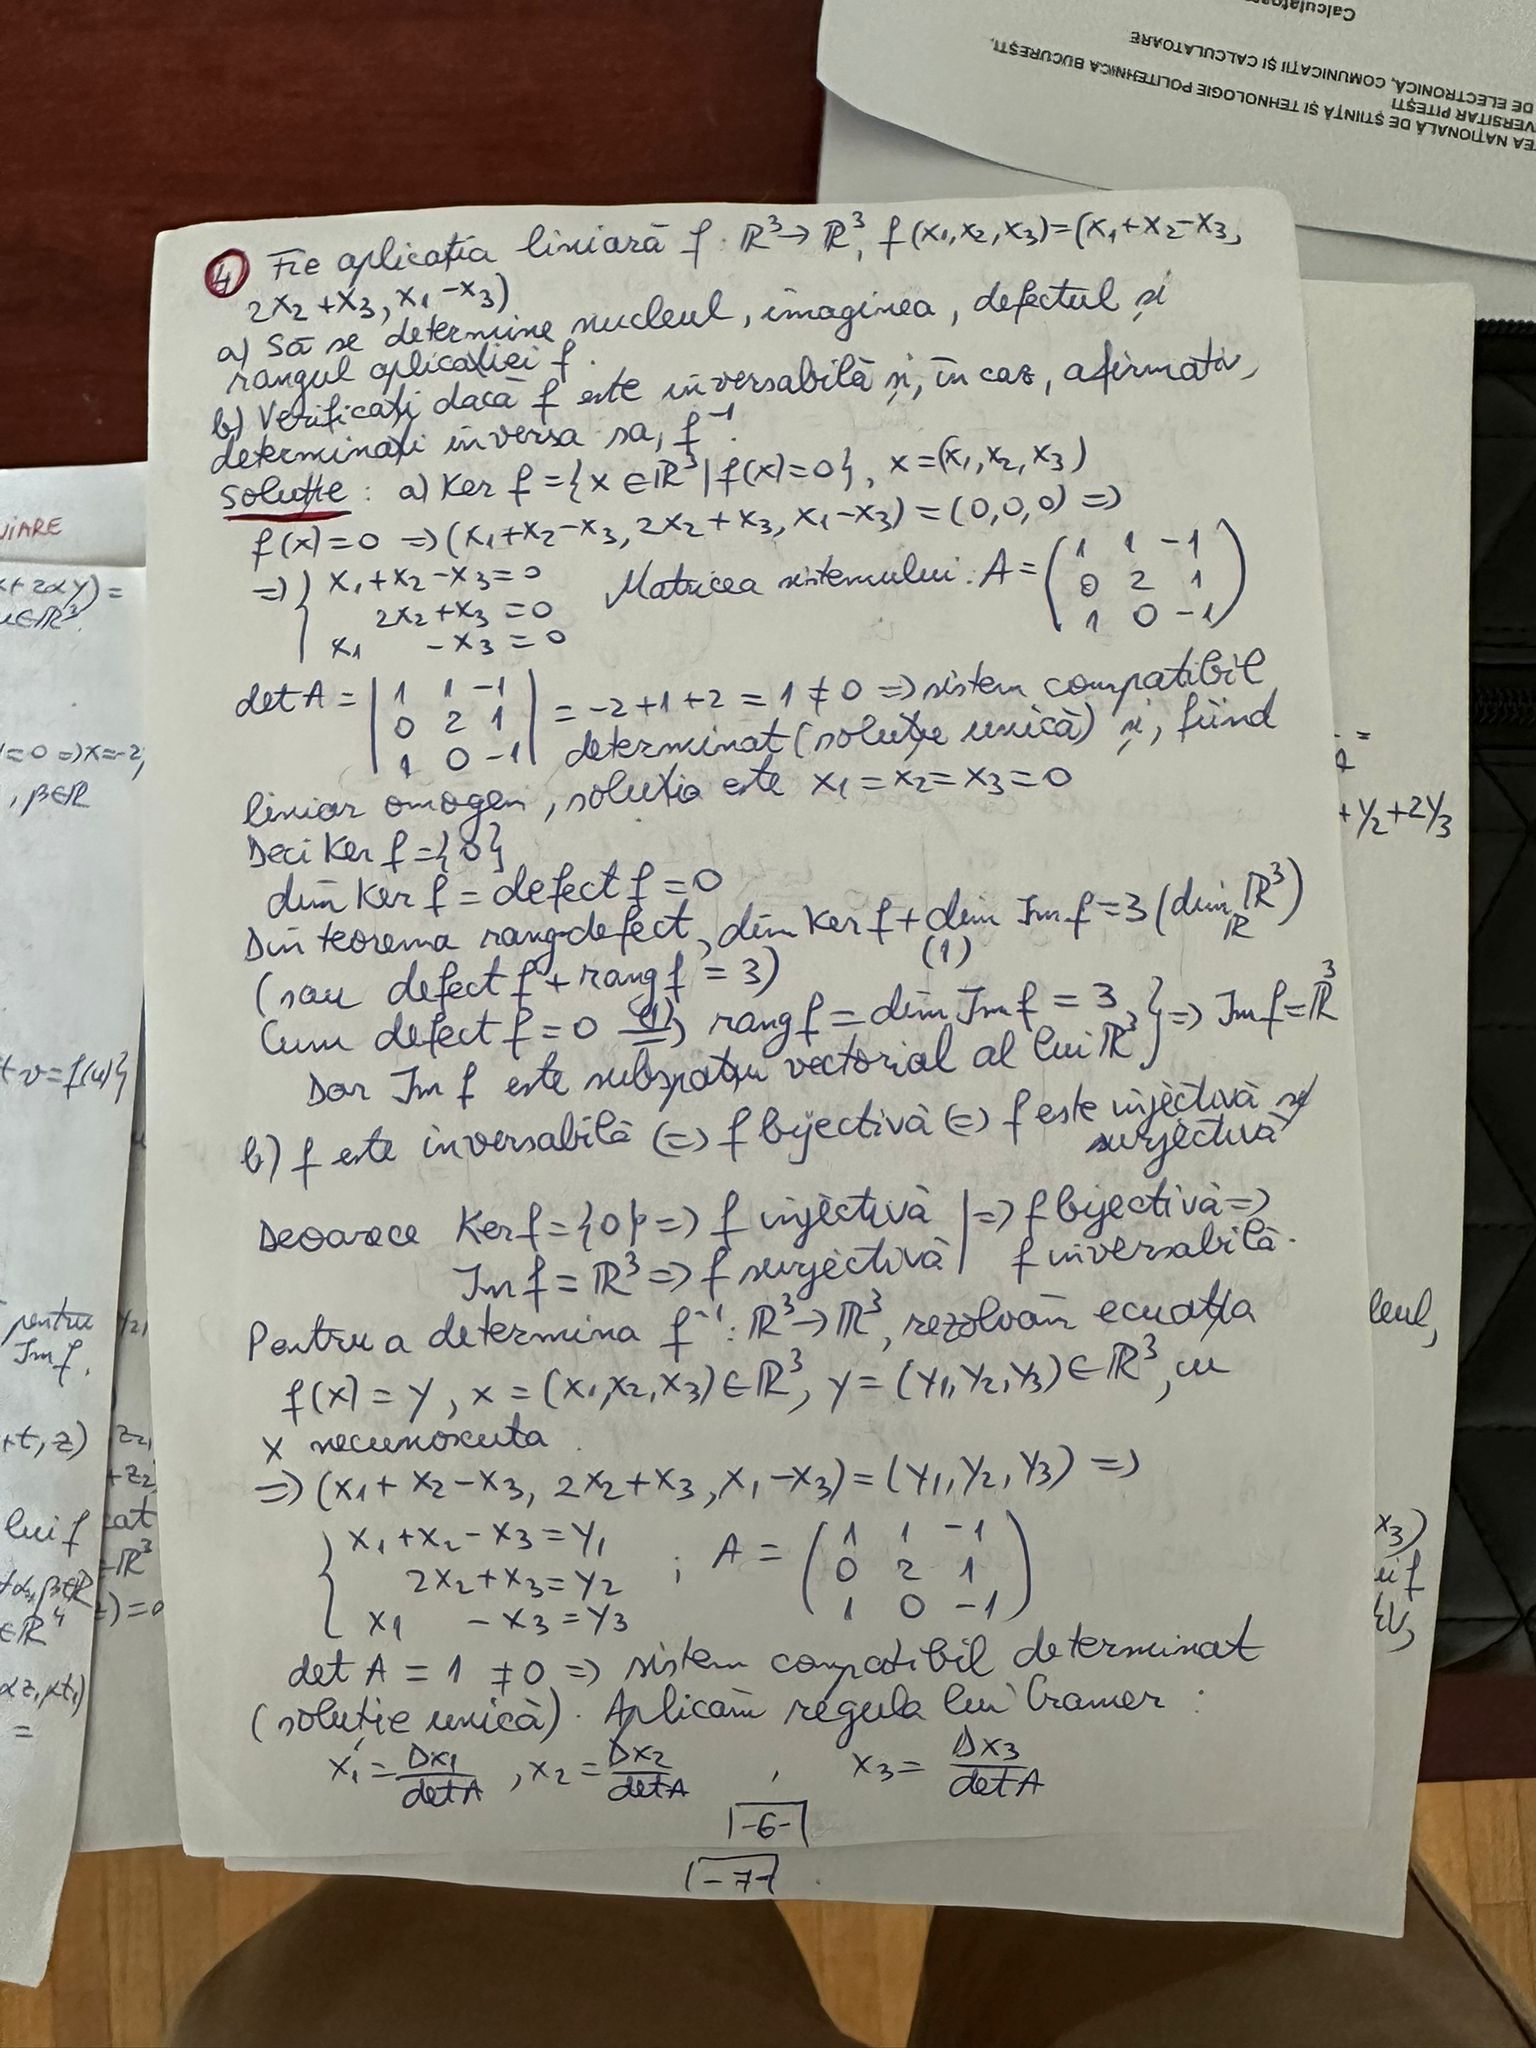 Calculatoare
DE ELECTRONICĂ, COMUNICAȚII ȘI CALCULATOARE
VERSITAR PITEȘTI
TEA NAȚIONALĂ DE ȘTIINȚĂ ȘI TEHNOLOGIE POLITEHNICA BUCUREȘTI,
④ Fie aplicația liniară f: ℝ³→ℝ³, f(x₁,x₂,x₃)=(x₁+x₂-x₃,
2x₂+x₃, x₁-x₃)
a) Să se determine nucleul, imaginea, defectul și
rangul aplicației f.
b) Verificați dacă f este inversabilă și, în caz, afirmativ,
determinați inversa sa, f⁻¹.
Soluție: a) Ker f = {x∈ℝ³ | f(x)=0}, x=(x₁,x₂,x₃)
f(x)=0 => (x₁+x₂-x₃, 2x₂+x₃, x₁-x₃) = (0,0,0) =>
=> { x₁+x₂-x₃=0 Matricea sistemului: A = ( 1 1 -1
2x₂+x₃=0 0 2 1
x₁ -x₃=0 1 0 -1 )
det A = | 1 1 -1
0 2 1
1 0 -1 | = -2+1+2 = 1 ≠ 0 => sistem compatibil
determinat (soluție unică) și, fiind
liniar omogen, soluția este x₁=x₂=x₃=0
Deci Ker f = {0}
dim Ker f = defect f = 0
Din teorema rang-defect, dim Ker f + dim Im f = 3 (dim_ℝ ℝ³)
(1)
(sau defect f + rang f = 3)
Cum defect f = 0 (1)=> rang f = dim Im f = 3 } => Im f = ℝ³
Dar Im f este subspațiu vectorial al lui ℝ³
b) f este inversabilă (=) f bijectivă (=) f este injectivă și
surjectivă
Deoarece Ker f = {0} => f injectivă | => f bijectivă =>
Im f = ℝ³ => f surjectivă | f inversabilă.
Pentru a determina f⁻¹: ℝ³→ℝ³, rezolvăm ecuația
f(x) = y, x = (x₁,x₂,x₃)∈ℝ³, y = (y₁,y₂,y₃)∈ℝ³, cu
x necunoscuta.
=> (x₁+x₂-x₃, 2x₂+x₃, x₁-x₃) = (y₁,y₂,y₃) =>
{ x₁+x₂-x₃=y₁ ; A = ( 1 1 -1
2x₂+x₃=y₂ 0 2 1
x₁ -x₃=y₃ 1 0 -1 )
det A = 1 ≠ 0 => sistem compatibil determinat
(soluție unică). Aplicăm regula lui Cramer:
x₁ = Δx₁/det A , x₂ = Δx₂/det A , x₃ = Δx₃/det A
-6-
-7-
NIARE
x+2αy)=
u∈ℝ³.
=0 => x=-2,
, β∈ℝ
+ v=f(u)}
pentru
Im f.
+t, z)
lui f
∈ℝ⁴
=
cat
+y₂+2y₃
leul,
x₃)